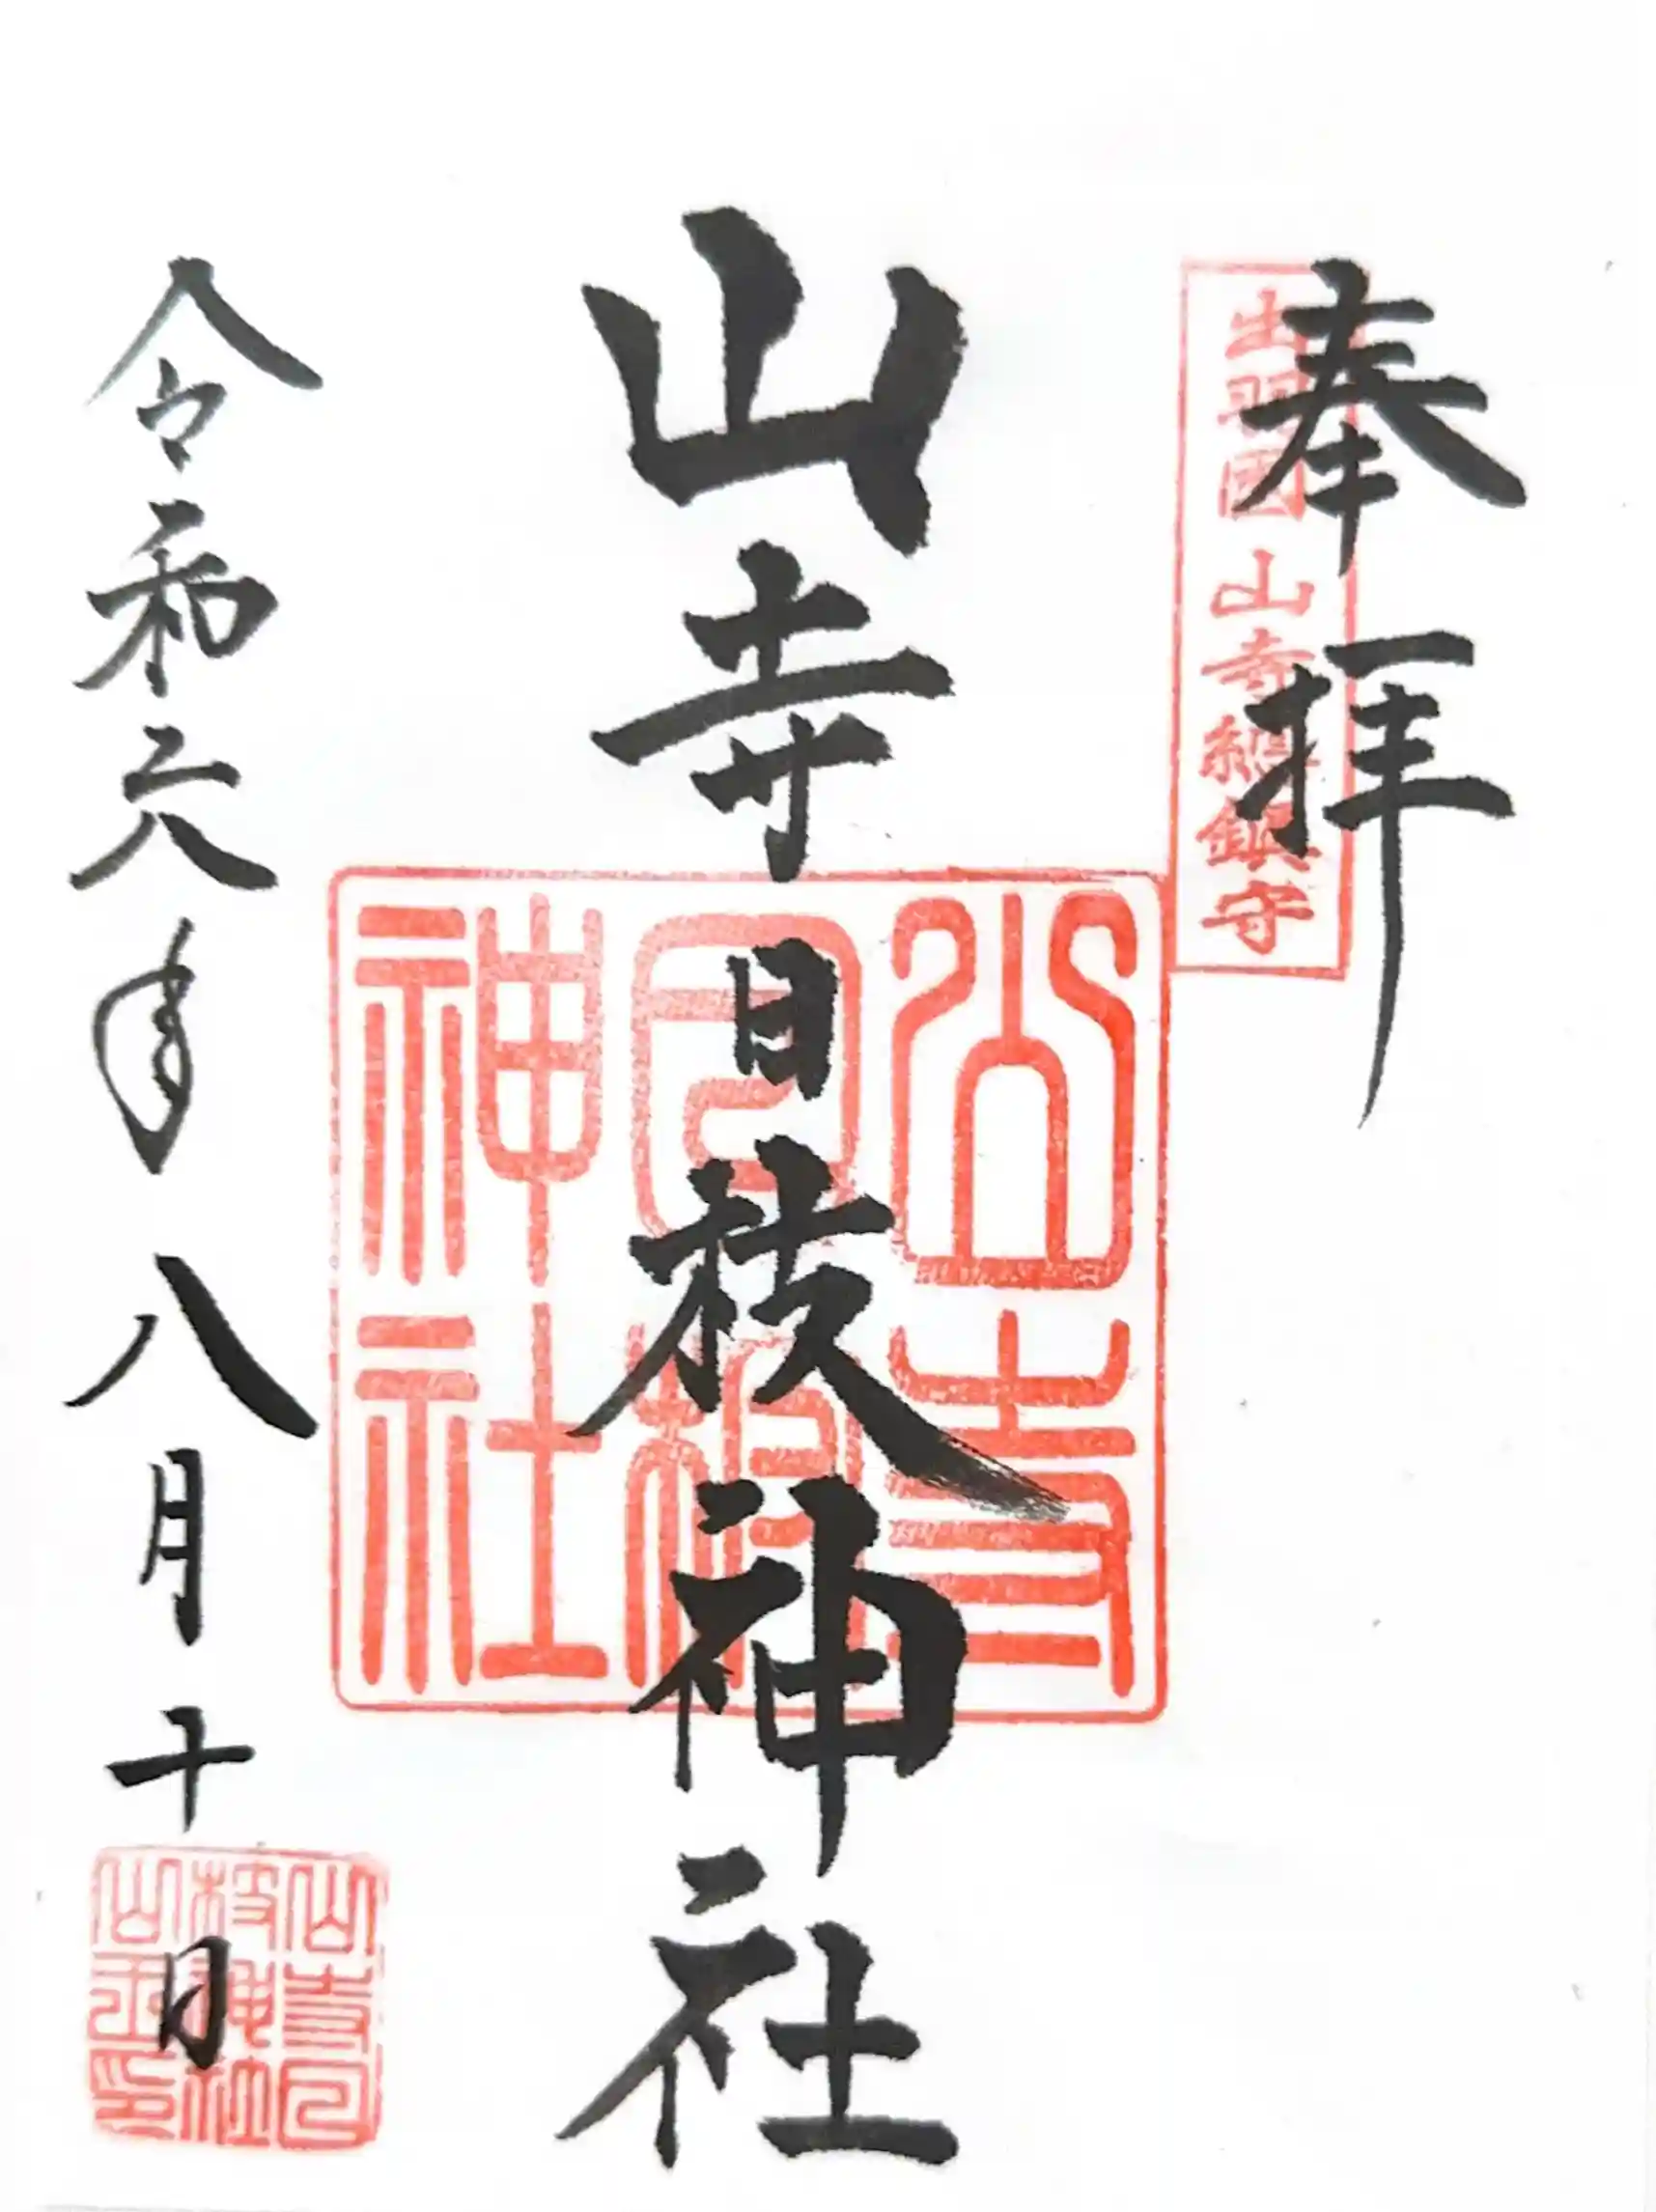 奉拝
出羽國 山寺総鎮守
山寺日枝神社
山寺日枝神社
令和六年 八月十日
山寺日枝神社